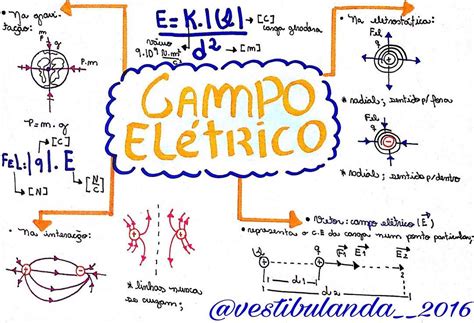 • Na gravi-
tação:
P.m
g
P.m
P=m.g
FEL=|q|.E
→ [C]
[N/C]
→ [N]
E = K.|Q|
d²
→ [C]
carga geradora
vácuo
9.10⁹ N.m²/C²
→ [m]
CAMPO
ELÉTRICO
• Na eletrostática:
Fel
q
* radial; sentido p/fora
Fel
q
* radial; sentido p/dentro
• Na interação:
* linhas nunca
se cruzam;
• Vetor: campo elétrico (E⃗)
• representa o C.E da carga num ponto particular;
Q
q
F⃗1
E⃗1
E⃗2
d1
d2
@vestibulanda__2016